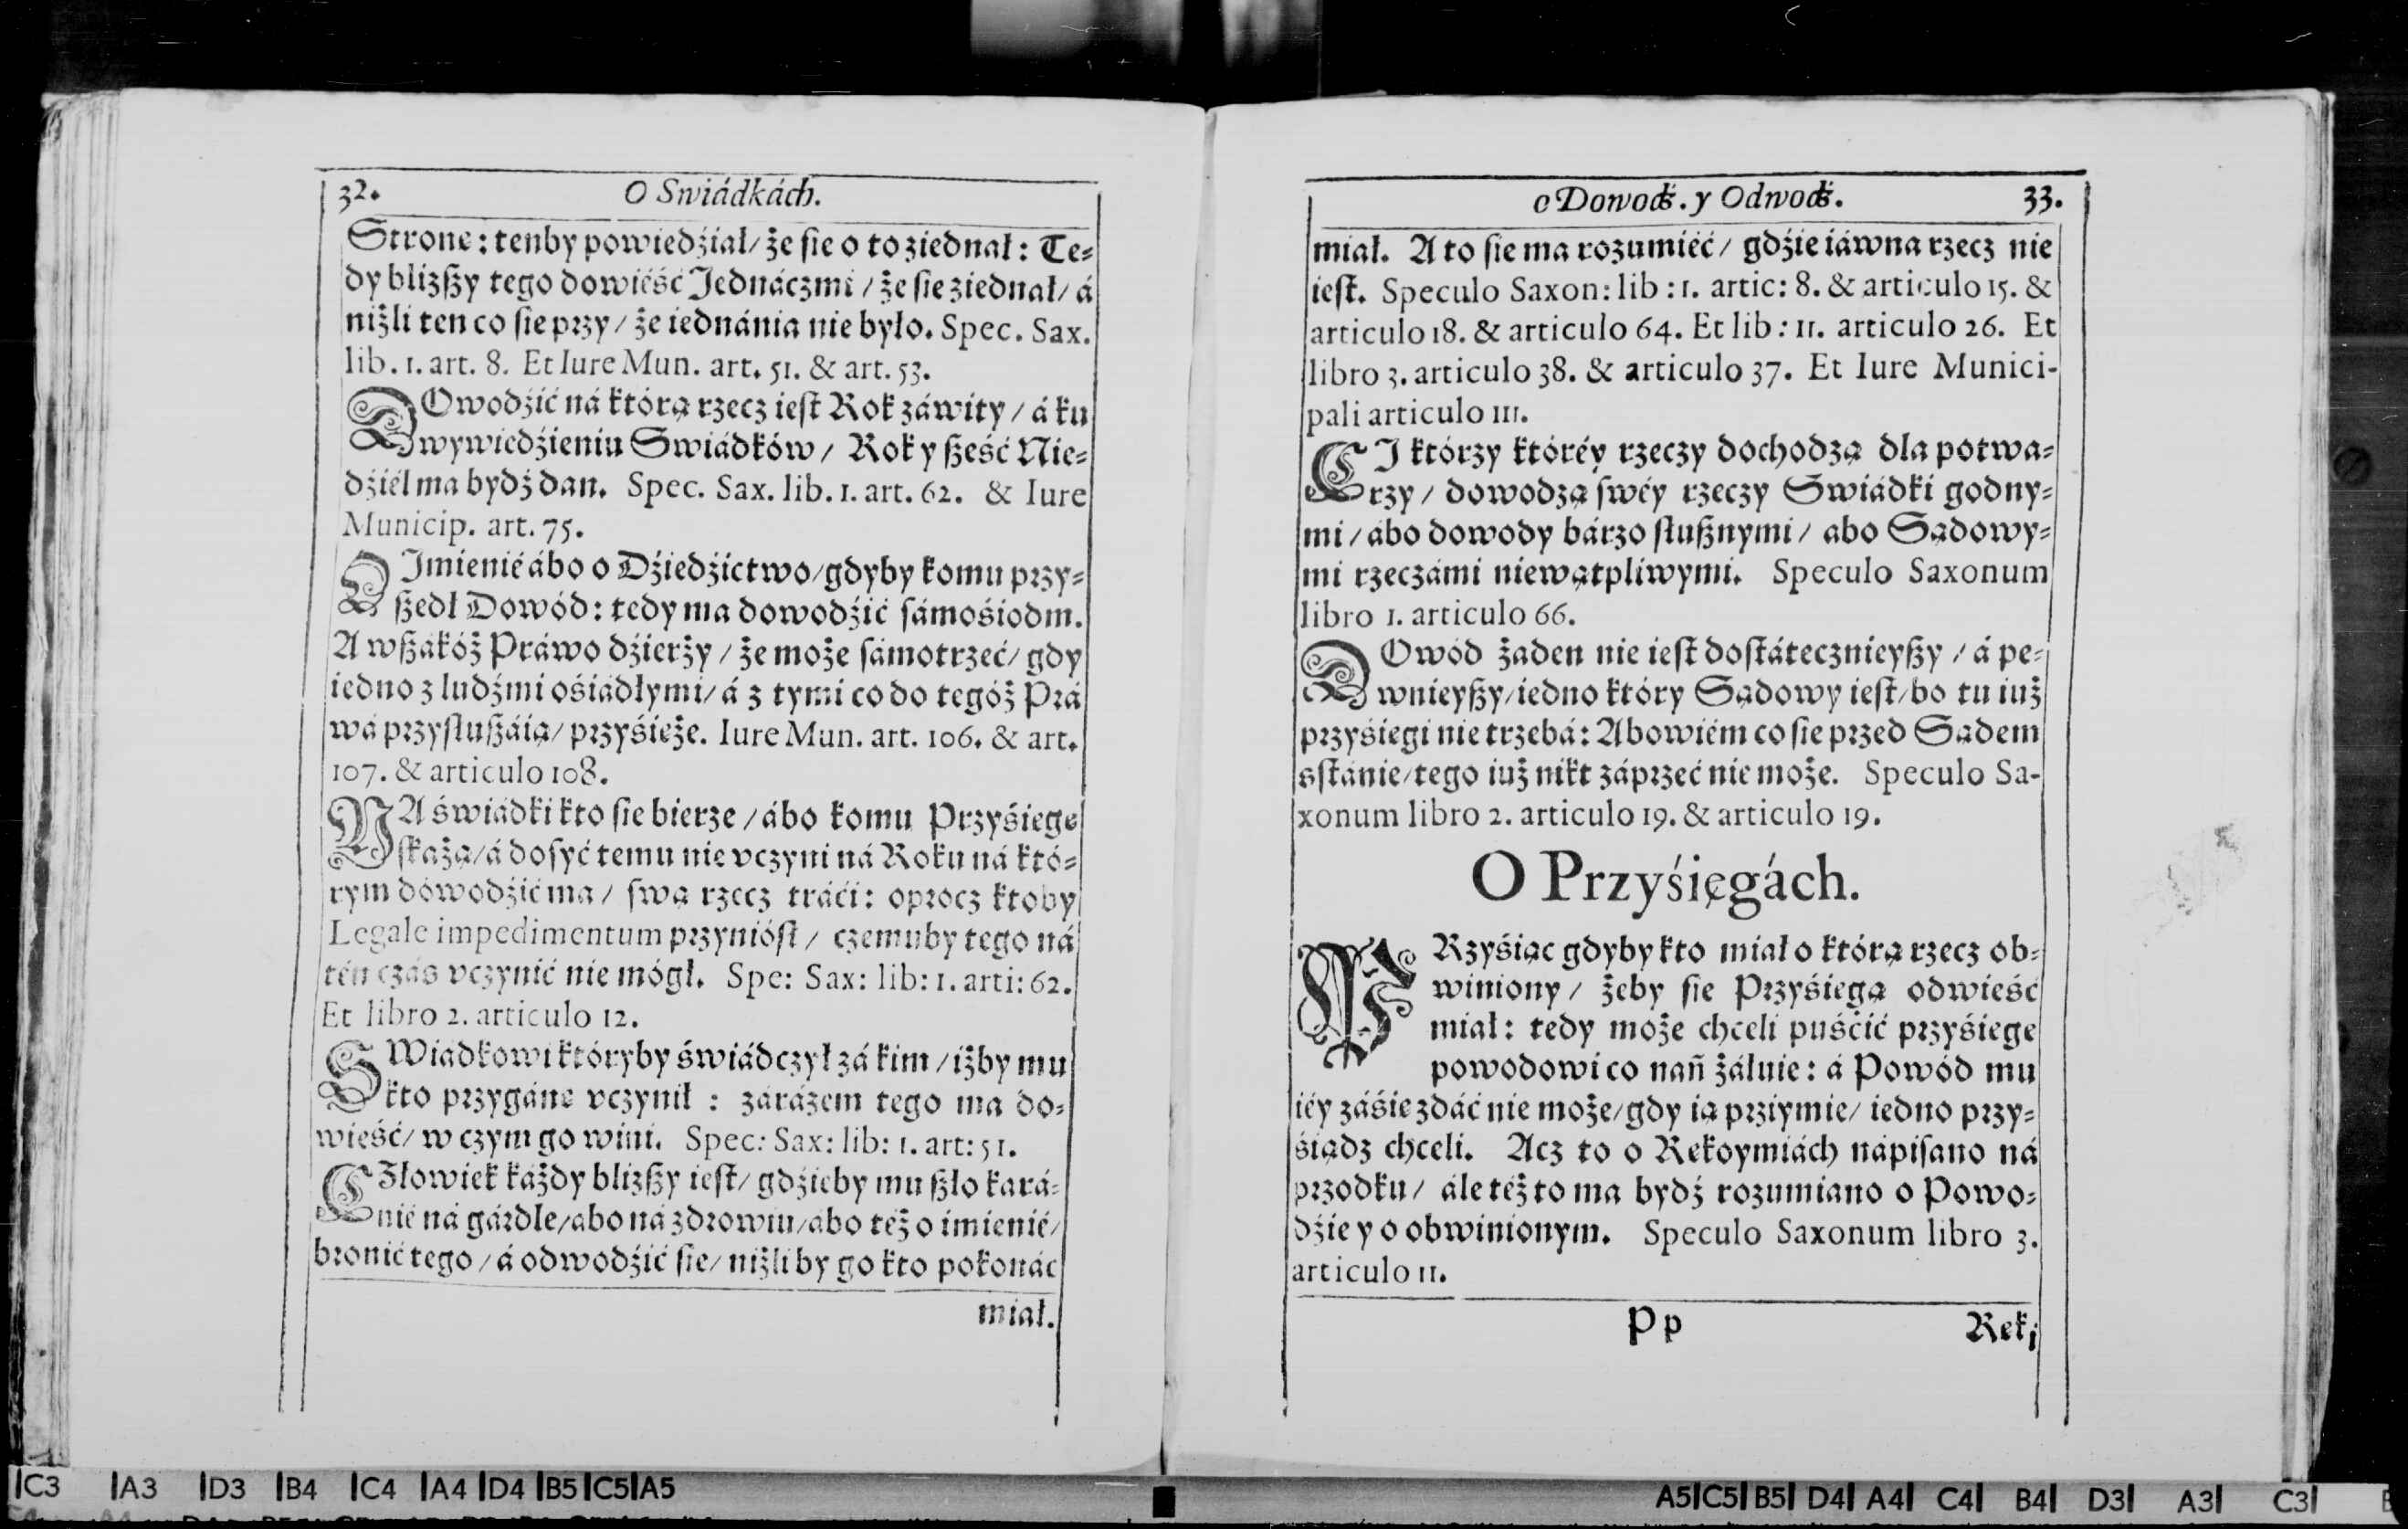 32.
O Swiádkách.
Strone: tenby powiedźiał/ że sie o to ziednał: Te⸗
dy blizßy tego dowiéść Jednáczmi / że sie ziednał/ á
niżli ten co sie przy / że iednánia nie było. Spec. Sax.
lib. 1. art. 8. Et Iure Mun. art. 51. & art. 53.
DOwodźić ná którą rzecz iest Rok záwity / á ku
wywiedźieniu Swiádków / Rok y ßeść Nie⸗
dźiél ma bydź dan. Spec. Sax. lib. 1. art. 62. & Iure
Municip. art. 75.
O Jmienié ábo o Dźiedźictwo/ gdyby komu przy⸗
ßedł Dowód: tedy ma dowodźić sámośiodm.
A wßakóż Práwo dźierży / że może sámotrzeć/ gdy
iedno z ludźmi ośiádłymi/ á z tymi co do tegóż Prá
wá przysłußáią/ przyśieże. Iure Mun. art. 106. & art.
107. & articulo 108.
NA świadki kto sie bierze / ábo komu Przyśiege
skażą/ á dosyć temu nie vczyni ná Roku ná któ⸗
rym dowodźić ma / swą rzecz tráći: oprocz ktoby
Legale impedimentum przyniósł / czemuby tego ná
tén czás vczynić nie mógł. Spe: Sax: lib: 1. arti: 62.
Et libro 2. articulo 12.
SWiadkowi któryby świádczył zá kim / iżby mu
kto przygáne vczynił : zárázem tego ma do⸗
wieść/ w czym go wini. Spec: Sax: lib: 1. art: 51.
CZłowiek káżdy blizßy iest/ gdźieby mu ßło kará⸗
nié ná gárdle/ abo ná zdrowiu/ ábo téż o imienié/
bronić tego / á odwodźić sie/ niżli by go kto pokonác
miał.
o Dowodź. y Odwodź.
33.
miał. A to sie ma rozumiéć/ gdźie iáwna rzecz nie
iest. Speculo Saxon: lib : 1. artic: 8. & articulo 15. &
articulo 18. & articulo 64. Et lib: 11. articulo 26. Et
libro 3. articulo 38. & articulo 37. Et Iure Munici-
pali articulo 111.
CJ którzy któréy rzeczy dochodzą dla potwa⸗
rzy / dowodzą swéy rzeczy Swiádki godny⸗
mi / ábo dowody bárzo słußnymi / abo Sądowy⸗
mi rzeczámi niewątpliwymi. Speculo Saxonum
libro 1. articulo 66.
DOwód żaden nie iest dostátecznieyßy / á pe⸗
wnieyßy/ iedno który Sądowy iest/ bo tu iuż
przyśiegi nie trzebá: Abowiém co sie przed Sądem
sstánie/ tego iuż nikt záprzeć nie może. Speculo Sa-
xonum libro 2. articulo 19. & articulo 19.
O Przyśięgách.
PRzyśiąc gdyby kto miał o którą rzecz ob⸗
winiony / żeby sie Przyśiegą odwieść
miał: tedy może chceli puśćić przyśiege
powodowi co nań żáłuie: á Powód mu
iéy záśie zdáć nie może/ gdy ią prziymie/ iedno przy⸗
śiądz chceli. Acz to o Rekoymiách nápisano ná
przodku/ ále téż to ma bydź rozumiano o Powo⸗
dźie y o obwinionym. Speculo Saxonum libro 3.
articulo 11.
Pp
Rek⸗
C3 A3 D3 B4 C4 A4 D4 B5 C5 A5
A5 C5 B5 D4 A4 C4 B4 D3 A3 C3